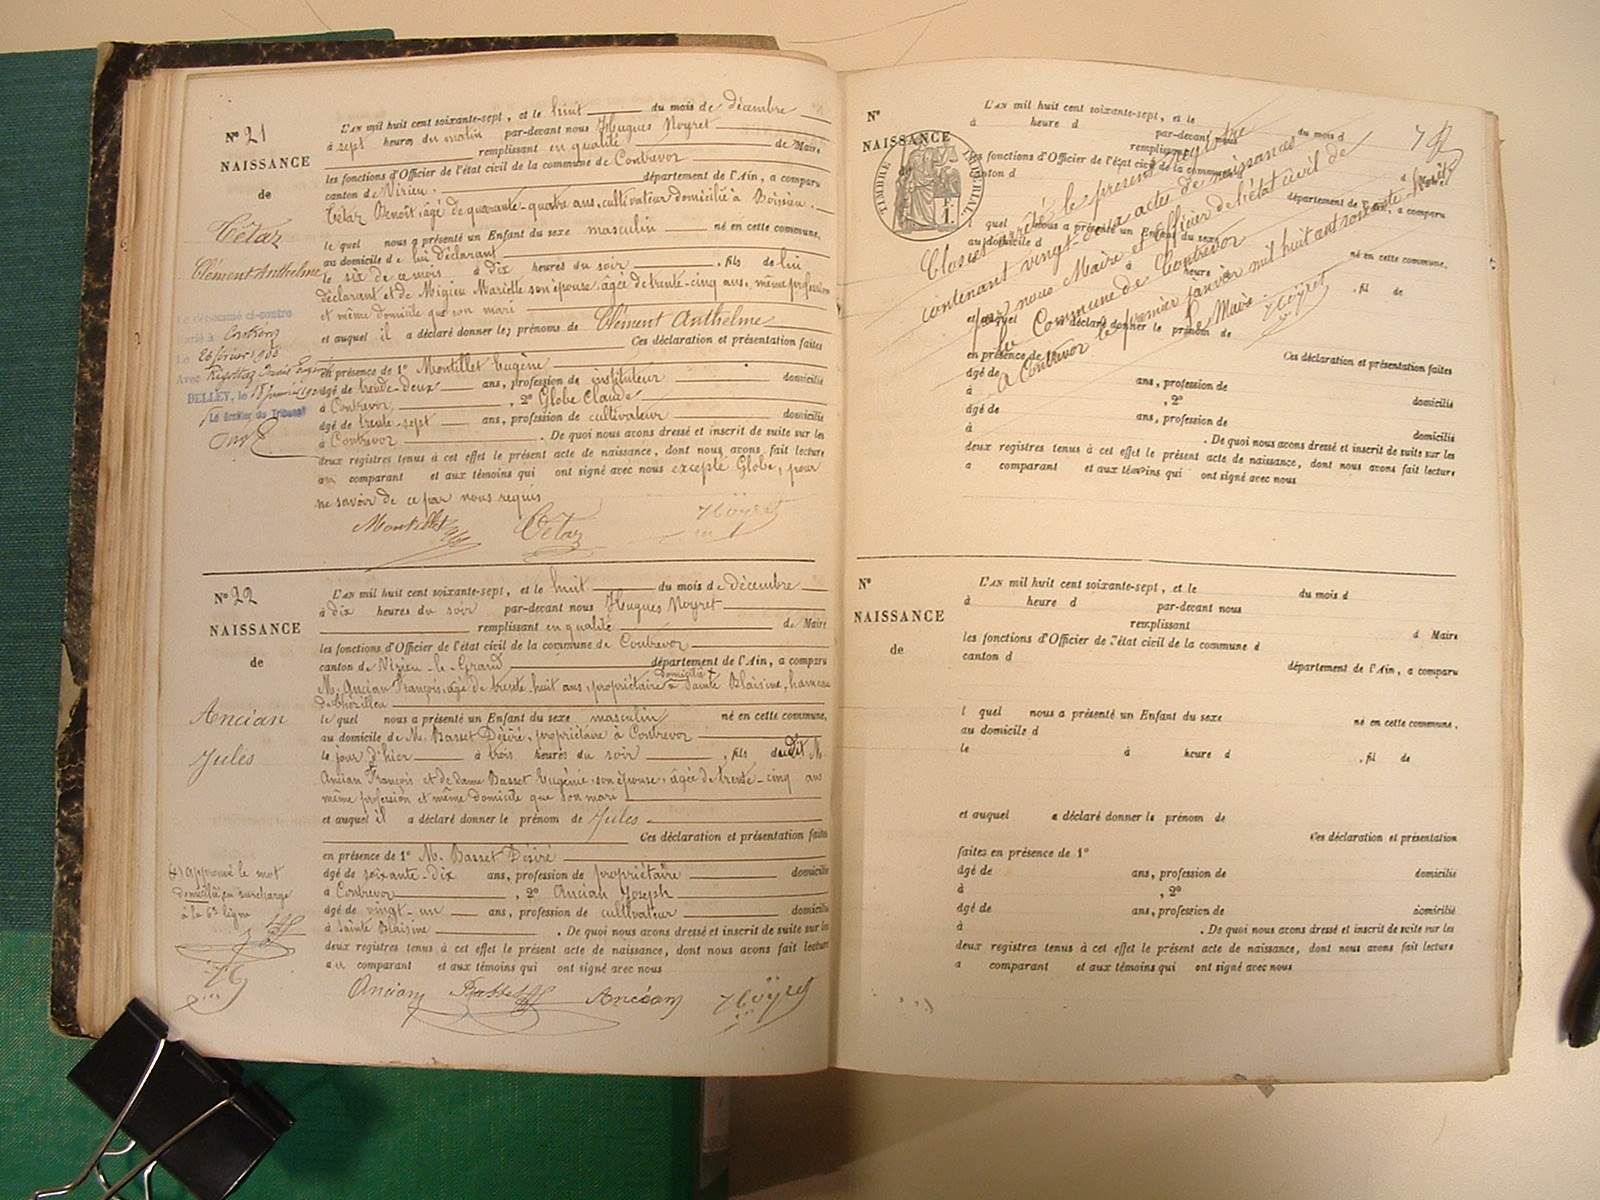 N° 21
NAISSANCE
de
Tétaz
Clément Anthelme
L'AN mil huit cent soixante-sept, et le huit du mois de décembre
à sept heures du matin par-devant nous Hugues Noyret
remplissant en qualité de Maire
les fonctions d'Officier de l'état civil de la commune de Contrevoz
canton de Virieu. département de l'Ain, a comparu
Tétaz Benoît, âgé de quarante-quatre ans, cultivateur domicilié à Boissieu.
le quel nous a présenté un Enfant du sexe masculin né en cette commune,
au domicile de lui déclarant
le six de ce mois à dix heures du soir, fils de lui
déclarant et de Migieu Mariette son épouse, âgée de trente-cinq ans, même profession
et même domicile que son mari
et auquel il a déclaré donner les prénoms de Clément Anthelme
Ces déclaration et présentation faites
en présence de 1° Montillet Eugène
âgé de trente-deux ans, profession de instituteur domicilié
à Contrevoz, 2° Globe Claude
âgé de trente-sept ans, profession de cultivateur domicilié
à Contrevoz. De quoi nous avons dressé et inscrit de suite sur les
deux registres tenus à cet effet le présent acte de naissance, dont nous avons fait lecture
au comparant et aux témoins qui ont signé avec nous excepté Globe, pour
ne savoir de ce par nous requis
Montillet Tétaz Noyret
Le dénommé ci-contre
marié à Contrevoz
Le 26 février 1900
Avec
BELLEY, le
Le Greffier du Tribunal
N° 22
NAISSANCE
de
Ancian
Jules
L'AN mil huit cent soixante-sept, et le huit du mois de décembre
à dix heures du soir par-devant nous Hugues Noyret
remplissant en qualité de Maire
les fonctions d'Officier de l'état civil de la commune de Contrevoz
canton de Virieu-le-Grand département de l'Ain, a comparu
domicilié
M. Ancian François, âgé de trente huit ans, propriétaire à Sainte Blaisine, hameau
de
le quel nous a présenté un Enfant du sexe masculin né en cette commune,
au domicile de M. Basset Désiré, propriétaire à Contrevoz
le jour d'hier à trois heures du soir, fils dudit M.
Ancian François et de dame Basset Eugénie, son épouse, âgée de trente-cinq ans
même profession et même domicile que son mari
et auquel il a déclaré donner le prénom de Jules
Ces déclaration et présentation faites
en présence de 1° M. Basset Désiré
âgé de soixante-dix ans, profession de propriétaire domicilié
à Contrevoz, 2° Ancian Joseph
âgé de vingt-un ans, profession de cultivateur domicilié
à Sainte Blaisine. De quoi nous avons dressé et inscrit de suite sur les
deux registres tenus à cet effet le présent acte de naissance, dont nous avons fait lecture
au comparant et aux témoins qui ont signé avec nous
Ancian Basset Ancian Noyret
(+) Approuvé le mot
domicilié en surcharge
à la 6e ligne
N°
NAISSANCE
TIMBRE IMPERIAL
L'AN mil huit cent soixante-sept, et le du mois d
à heure d par-devant nous
remplissant d Maire
les fonctions d'Officier de l'état civil de la commune d
canton d département de l'Ain, a comparu
l quel nous a présenté un Enfant du sexe né en cette commune,
au domicile d
à heure d, fil de
et auquel a déclaré donner le prénom de
Ces déclaration et présentation faites
en présence de
âgé de ans, profession de domicilié
à, 2°
âgé de ans, profession de domicilié
à. De quoi nous avons dressé et inscrit de suite sur les
deux registres tenus à cet effet le présent acte de naissance, dont nous avons fait lecture
a comparant et aux témoins qui ont signé avec nous
Clos et arrêté le présent registre
contenant vingt-deux actes de naissances
par nous Maire et officier de l'état civil de
la Commune de Contrevoz
A Contrevoz le premier janvier mil huit cent soixante huit
Le Maire
Noyret
N°
NAISSANCE
de
L'AN mil huit cent soixante-sept, et le du mois d
à heure d par-devant nous
remplissant d Maire
les fonctions d'Officier de l'état civil de la commune d
canton d département de l'Ain, a comparu
l quel nous a présenté un Enfant du sexe né en cette commune,
au domicile d
le à heure d, fil de
et auquel a déclaré donner le prénom de
Ces déclaration et présentation
faites en présence de 1°
âgé de ans, profession de domicilié
à, 2°
âgé de ans, profession de domicilié
à. De quoi nous avons dressé et inscrit de suite sur les
deux registres tenus à cet effet le présent acte de naissance, dont nous avons fait lecture
a comparant et aux témoins qui ont signé avec nous